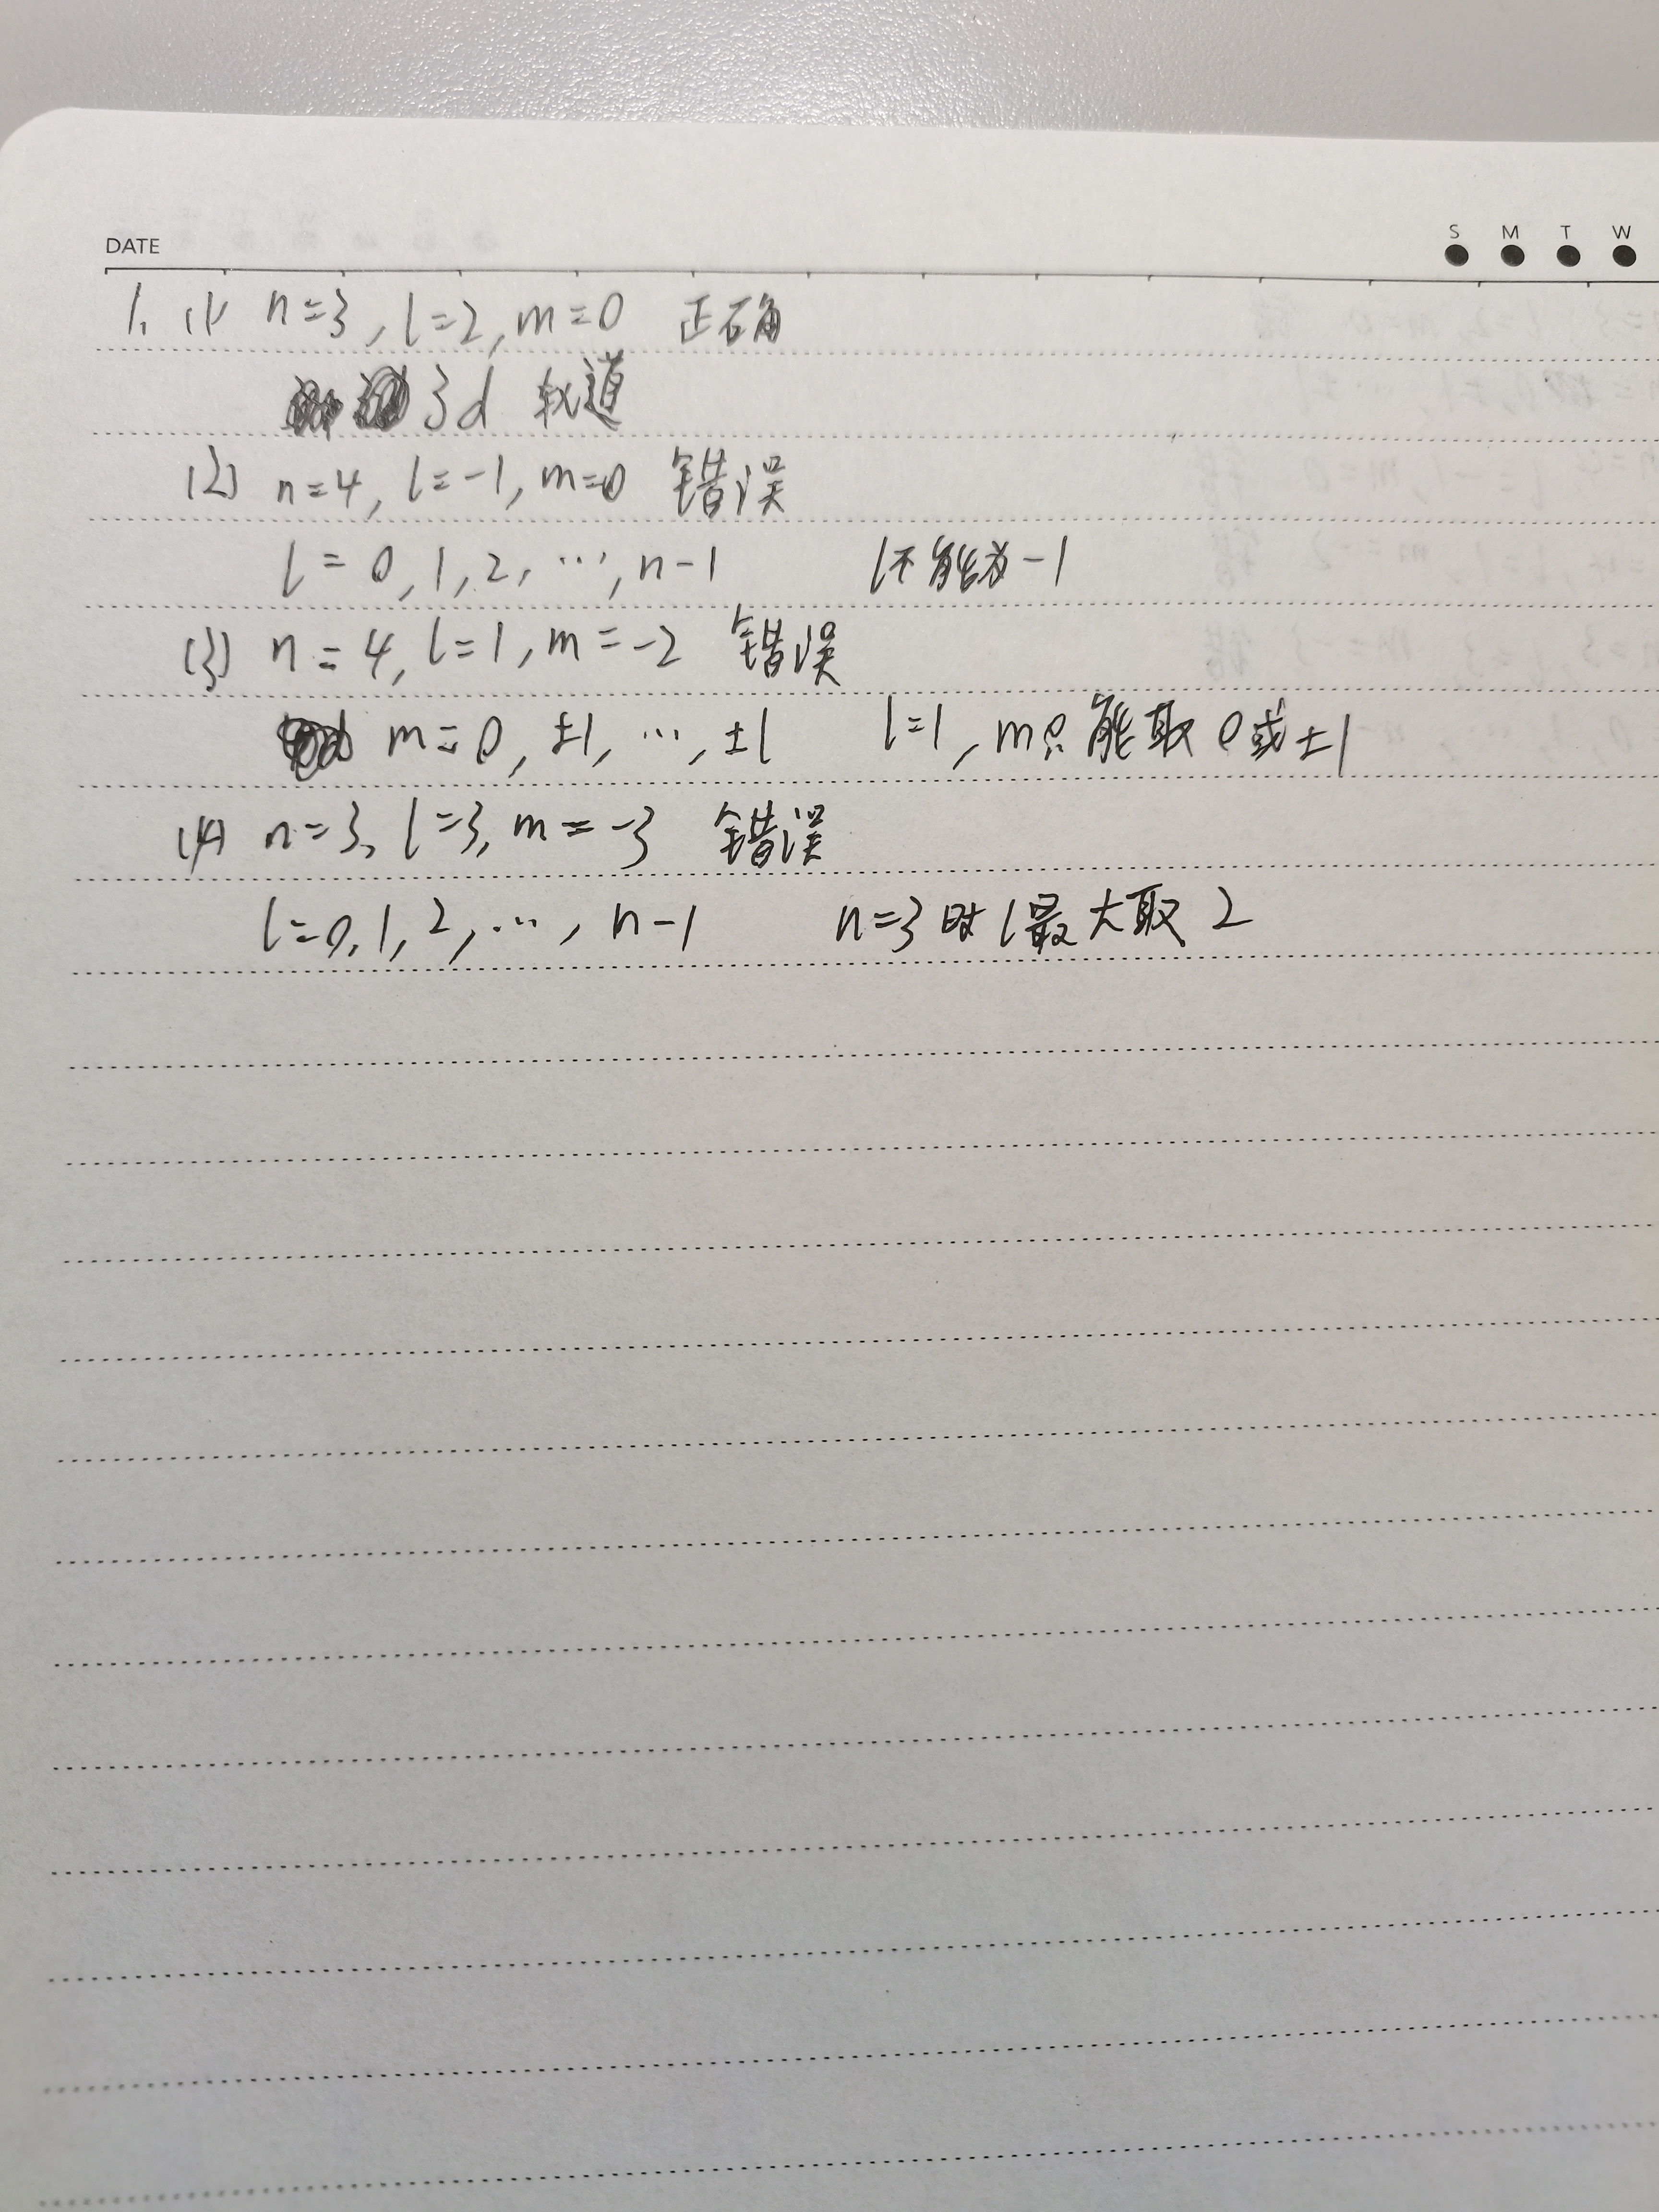 DATE
S M T W
1. (1) n=3, l=2, m=0 正确
3d 轨道
(2) n=4, l=-1, m=0 错误
l=0, 1, 2, …, n-1 l不能为-1
(3) n=4, l=1, m=-2 错误
m=0, ±1, …, ±l l=1, m只能取0或±1
(4) n=3, l=3, m=-3 错误
l=0, 1, 2, …, n-1 n=3时l最大取2